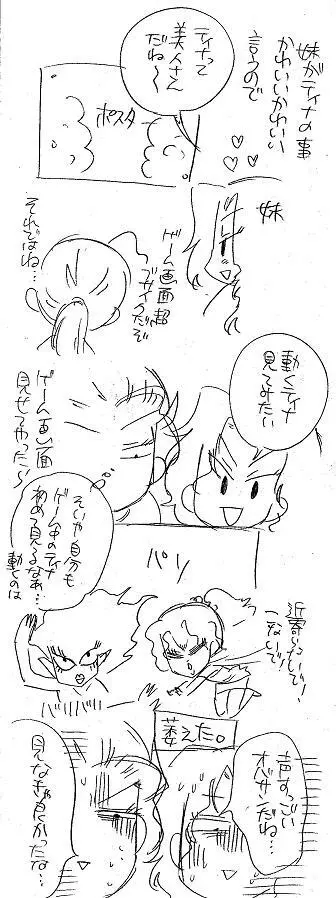 妹がティナの事
かわいいかわいい
言うので
ティナって
美人さん
だね〜
ポスタ
妹
ゲーム画面超
ブサイクだぞ
それではね…
動くティナ
見てみたい
ゲーム画面
見せてやった〜
そいや自分も
ゲーム中のティナ
初めて見るなぁ…
動くのは
パツ
近寄らないで!
一ないで!
バババババ
萎えた。
声すっごい
オバサンだね…
見なきゃ良かったな…